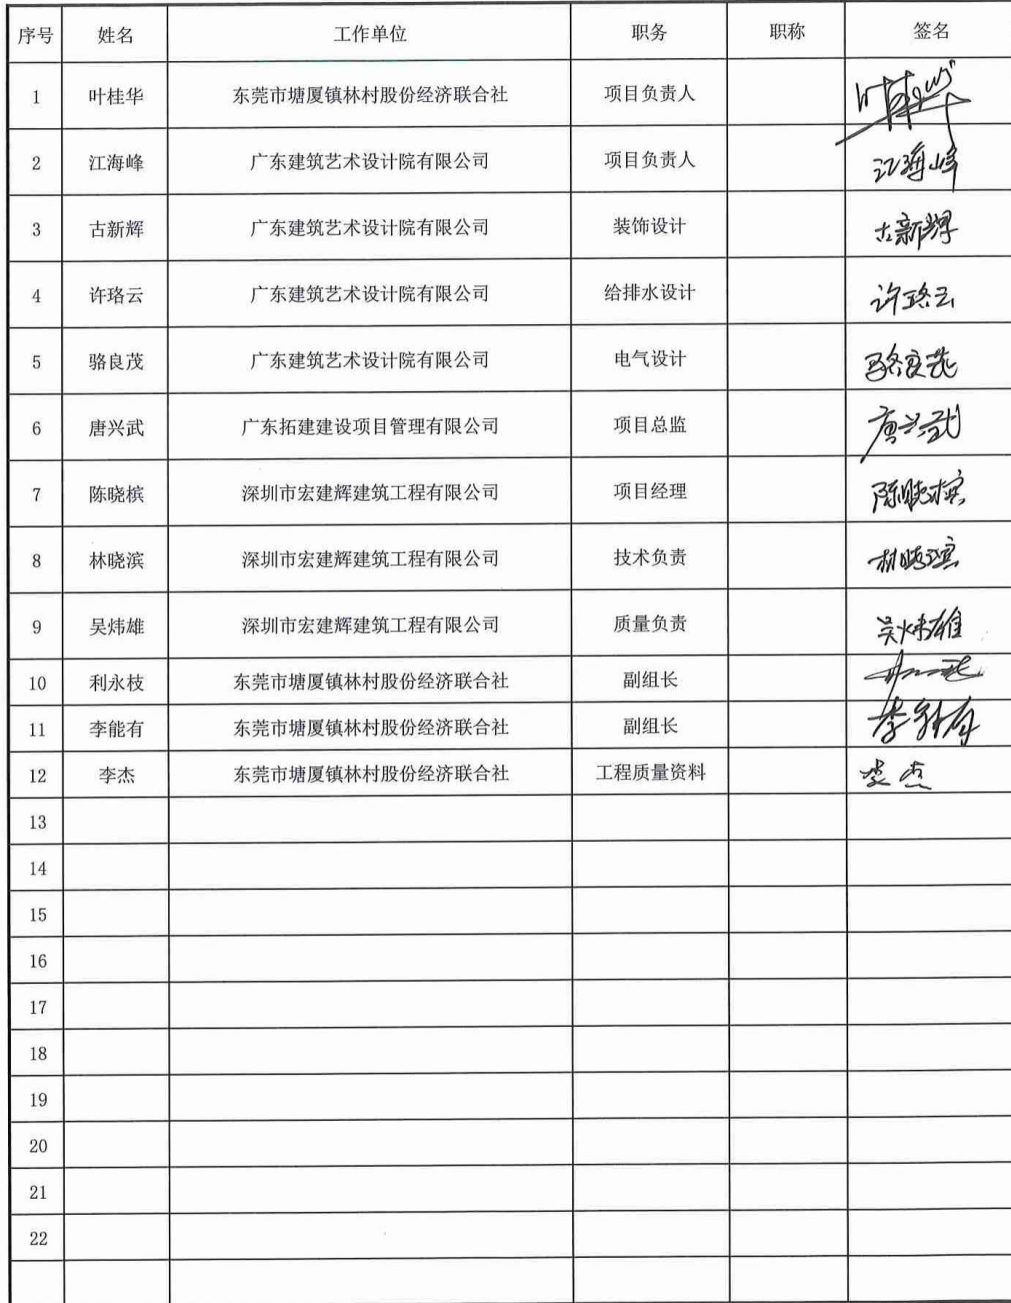 序号 姓名 工作单位 职务 职称 签名
1 叶桂华 东莞市塘厦镇林村股份经济联合社 项目负责人
2 江海峰 广东建筑艺术设计院有限公司 项目负责人 江海峰
3 古新辉 广东建筑艺术设计院有限公司 装饰设计 古新辉
4 许珞云 广东建筑艺术设计院有限公司 给排水设计 许珞云
5 骆良茂 广东建筑艺术设计院有限公司 电气设计 骆良茂
6 唐兴武 广东拓建建设项目管理有限公司 项目总监 唐兴武
7 陈晓槟 深圳市宏建辉建筑工程有限公司 项目经理 陈晓槟
8 林晓滨 深圳市宏建辉建筑工程有限公司 技术负责 林晓滨
9 吴炜雄 深圳市宏建辉建筑工程有限公司 质量负责 吴炜雄
10 利永枝 东莞市塘厦镇林村股份经济联合社 副组长
11 李能有 东莞市塘厦镇林村股份经济联合社 副组长 李能有
12 李杰 东莞市塘厦镇林村股份经济联合社 工程质量资料 李杰
13
14
15
16
17
18
19
20
21
22